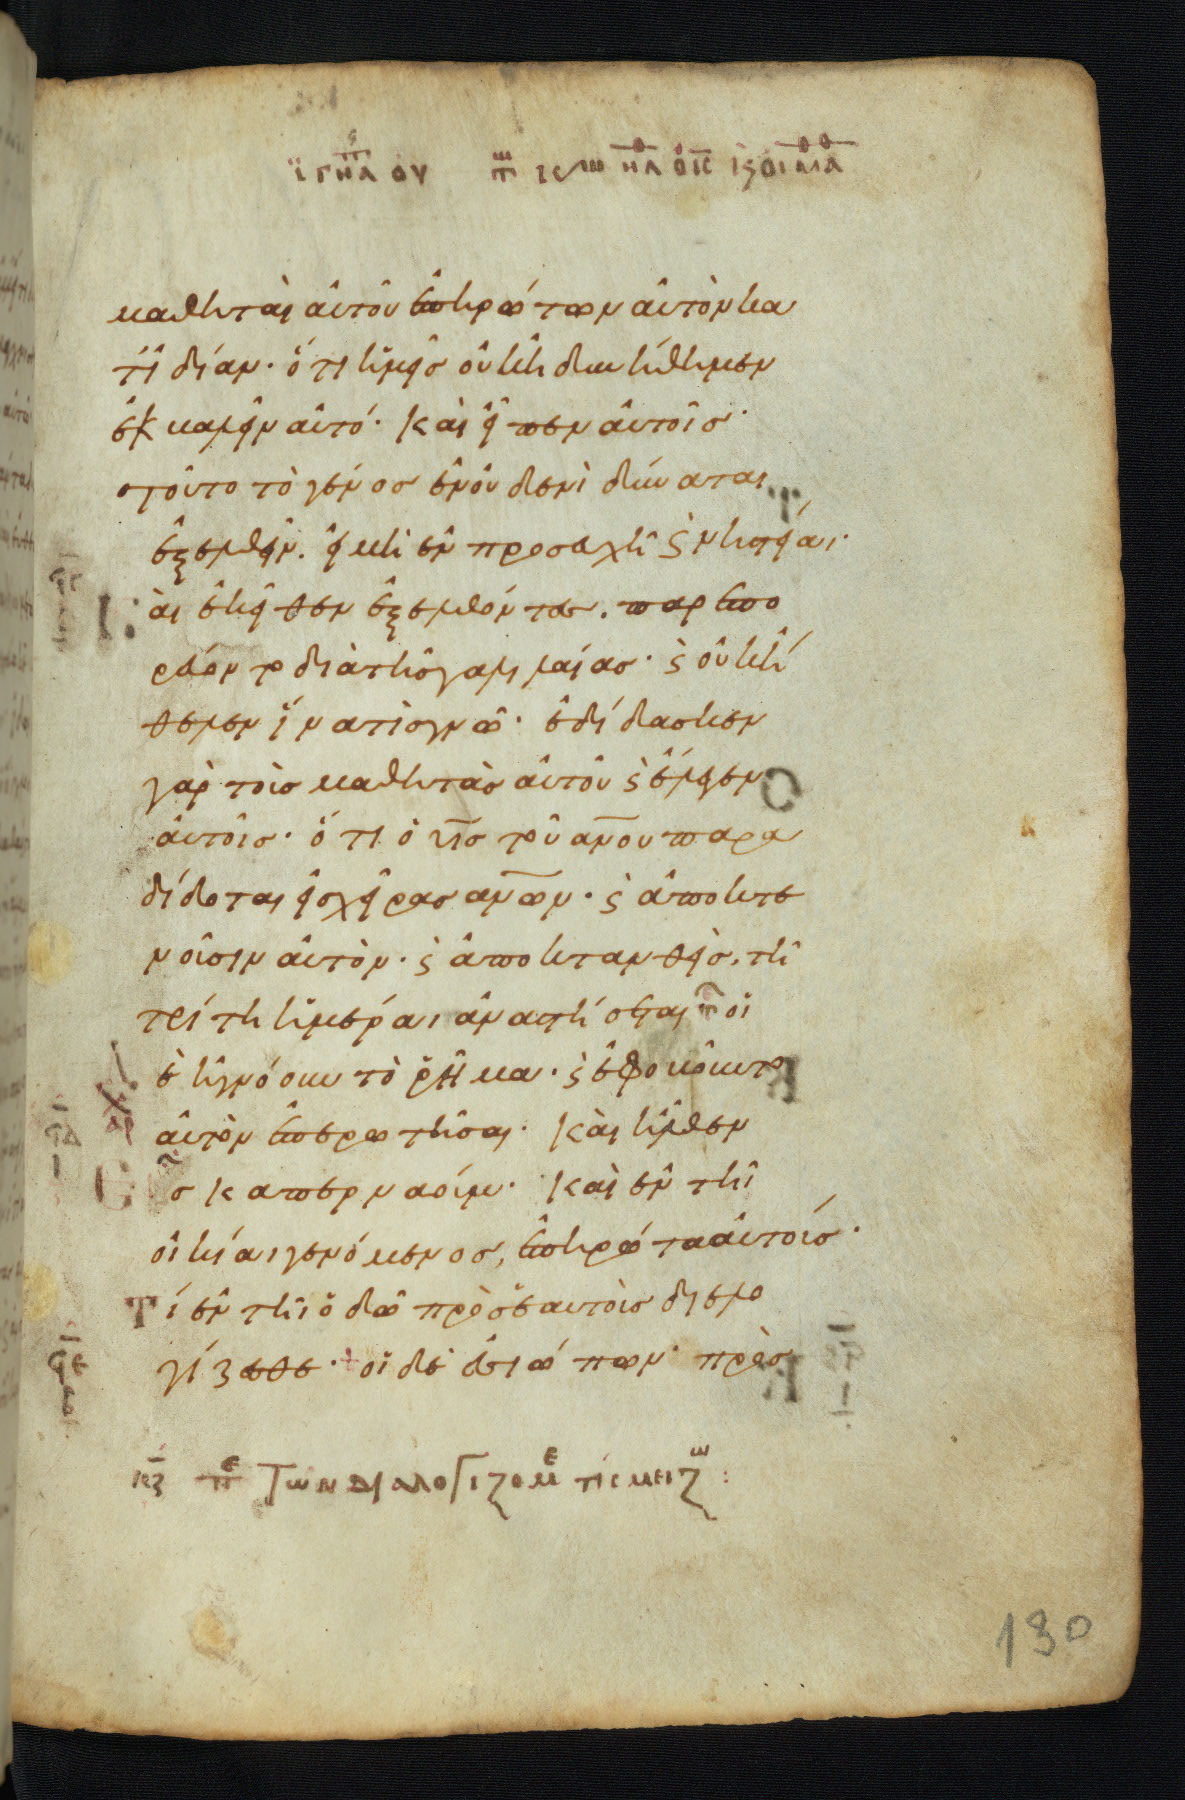 μαθηταὶ αὐτοῦ ἐπηρώτων αὐτὸν κα
τ᾽ ἰδίαν· ὅτι ἡμεῖς οὐκ ἠδυνήθημεν
ἐκβαλεῖν αὐτό· καὶ εἶπεν αὐτοῖς·
τοῦτο τὸ γένος ἐν οὐδενὶ δύναται
ἐξελθεῖν. εἰ μὴ ἐν προσευχῇ ϛ νηστείαι·
αἱ ἐκεῖθεν ἐξελθόντες. παρεπο
ρεύοντο διὰ τῆς γαλιλαίας· ϛ οὐκ ἤ
θελεν ἵνα τὶς γνῶ· ἐδίδασκεν
γὰρ τοὺς μαθητὰς αὐτοῦ ϛ ἔλεγεν
αὐτοῖς· ὅτι ὁ υ̅ς̅ τοῦ α̅ν̅ου παρα
δίδοται εἰς χεῖρας α̅ν̅ων· ϛ ἀποκτε
νοῦσιν αὐτὸν· ϛ ἀποκτανθεὶς. τῆ
τρίτη ἡμέραι ἀναστήσεται οἱ
δὲ ἠγνόουν τὸ ῥῆμα· ϛ ἐφοβοῦντο
αὐτὸν ἐπερωτῆσαι· Καὶ ἦλθεν
εἰς καπερναούμ· Καὶ ἐν τῆι
οἰκίαι γενόμενος, ἐπηρώτα αὐτούς·
Τί ἐν τῆι ὁδῶ πρὸς ἑαυτοὺς διελο
γίζεσθε· οἱ δὲ ἐσιώπων· πρὸς
κζ πε Των διαλογιζομε τίς μείζω:
130